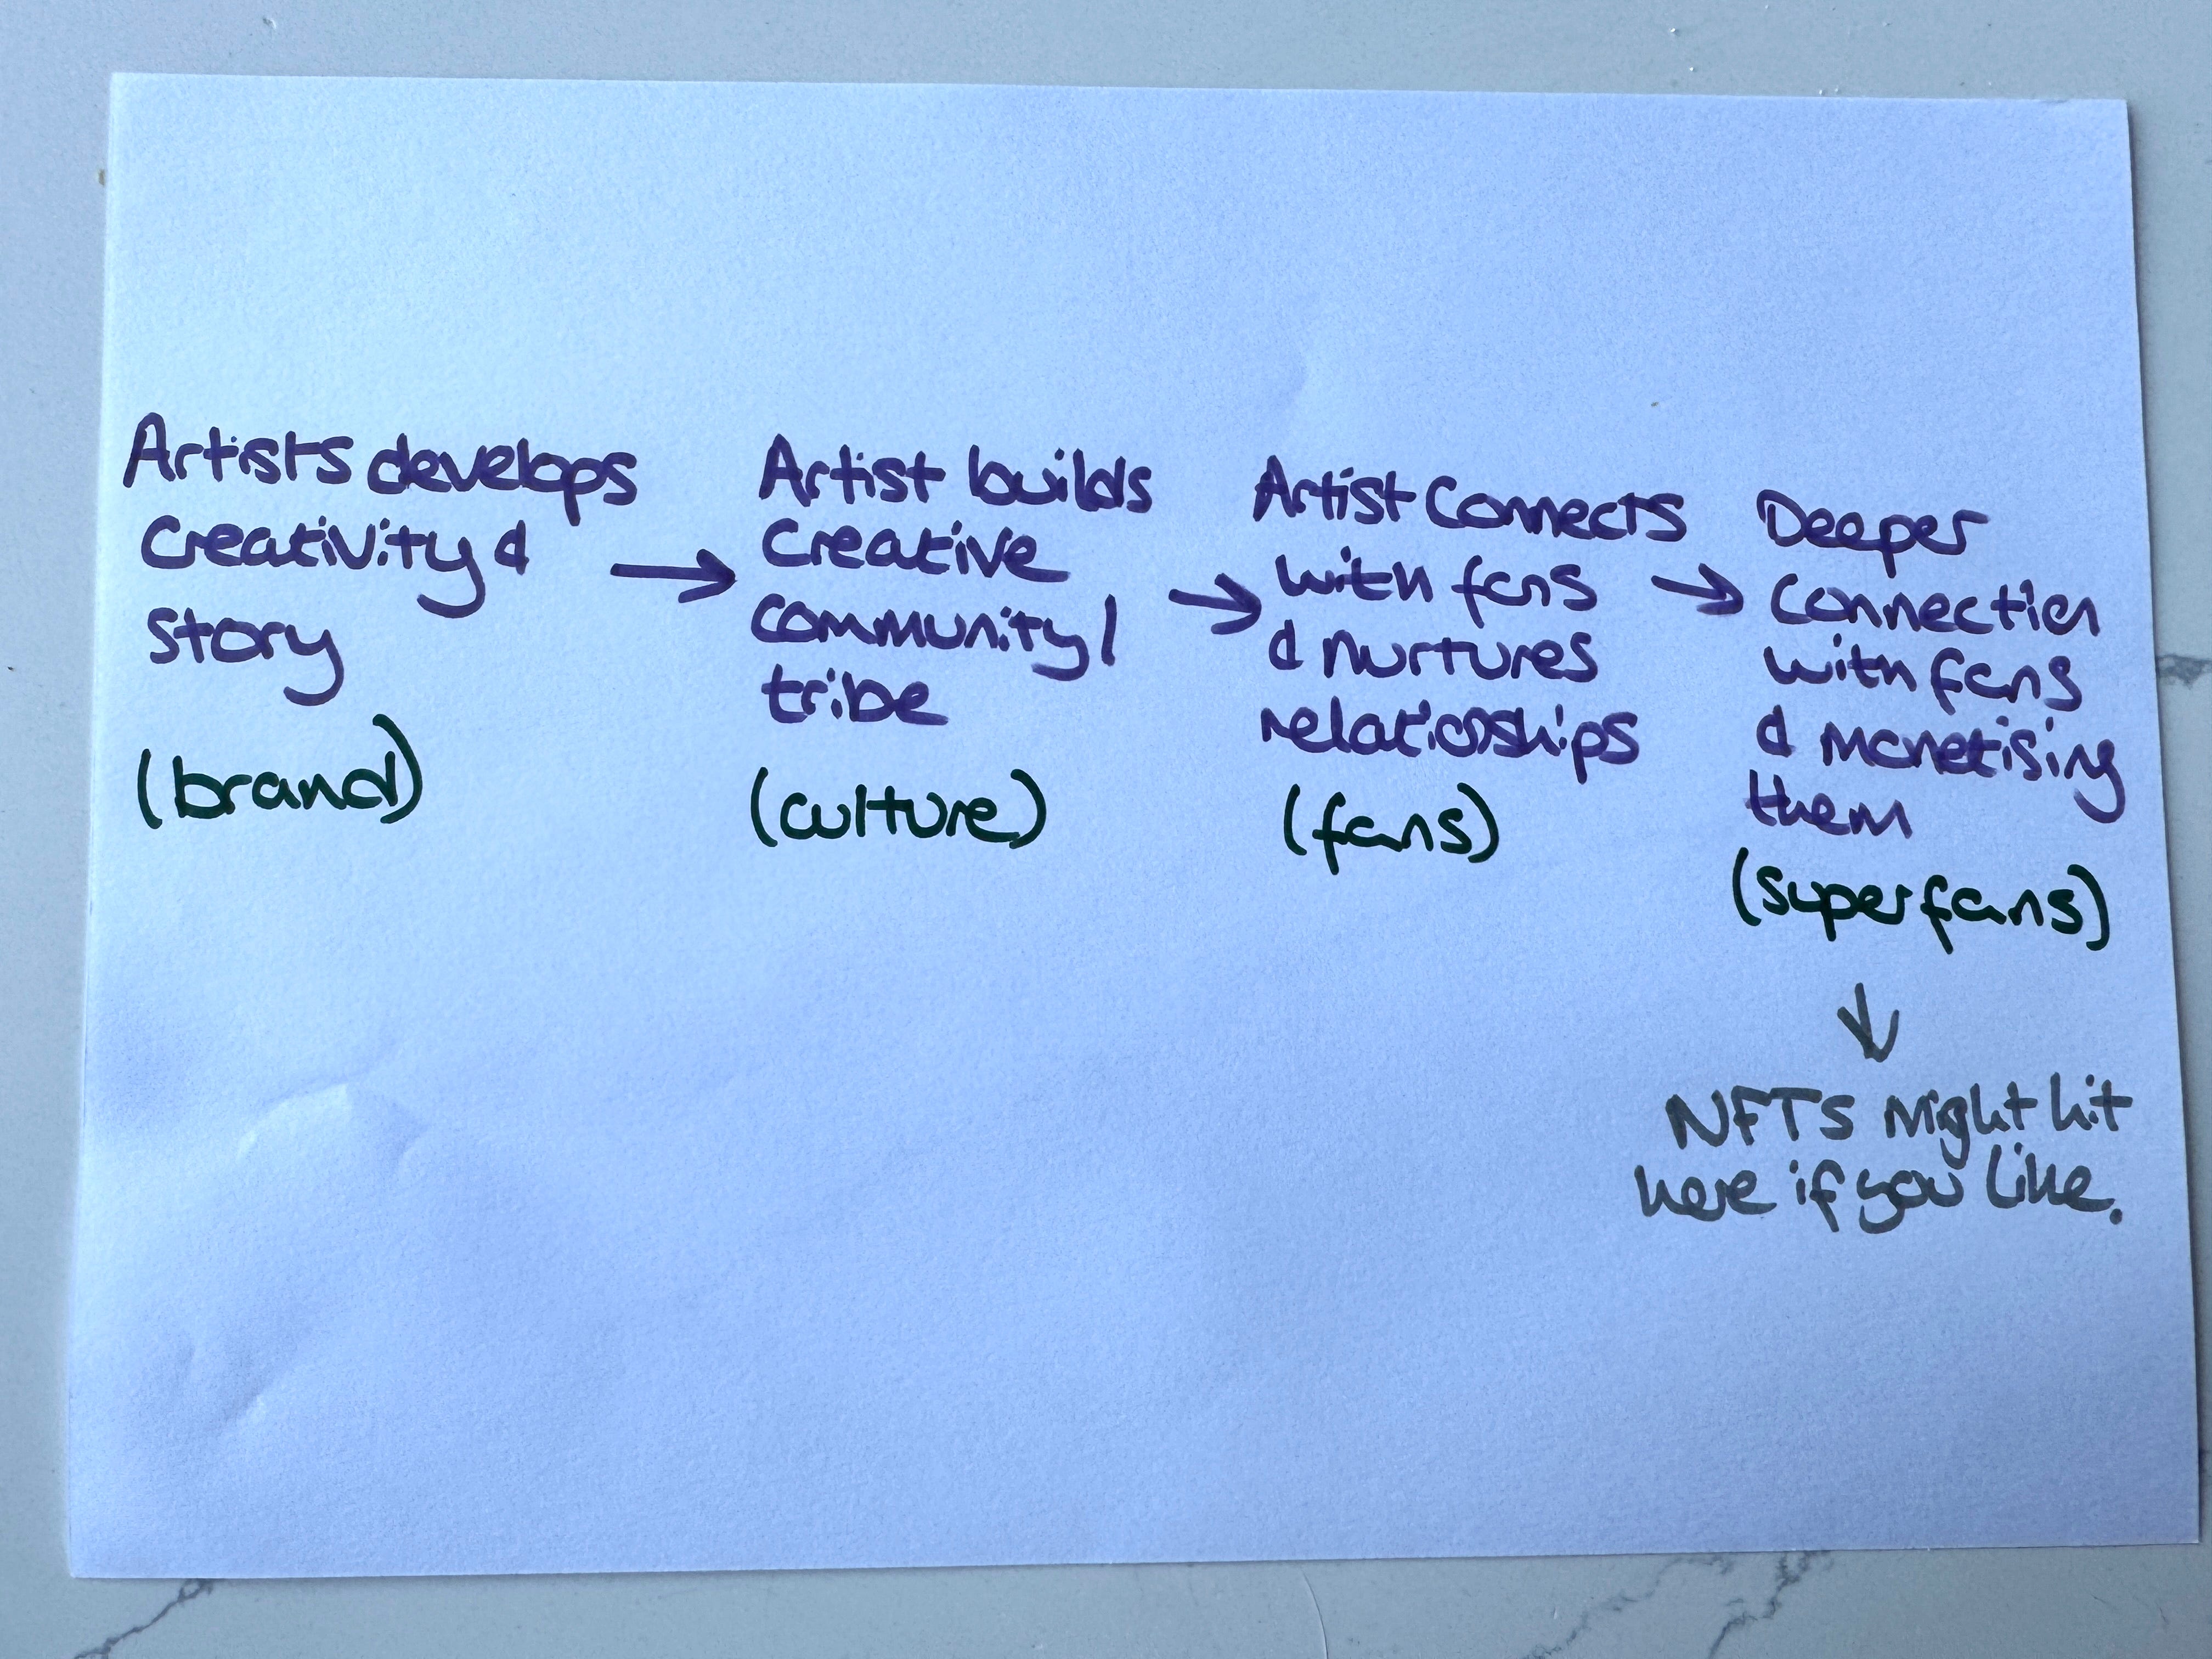 Artists develops
creativity &
story
(brand)
→
Artist builds
creative
community/
tribe
(culture)
→
Artist connects
with fans
& nurtures
relationships
(fans)
→
Deeper
connection
with fans
& monetising
them
(superfans)
↓
NFTs might hit
here if you like.